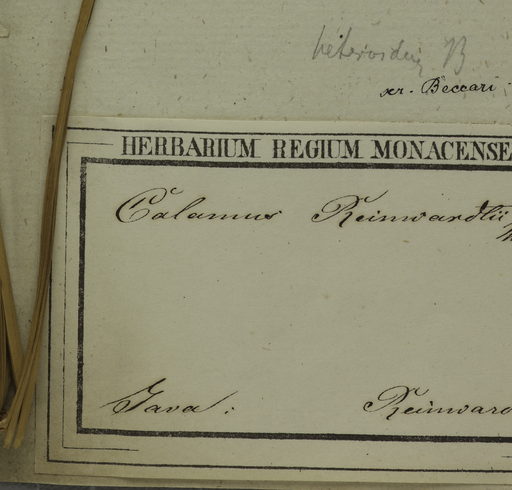 heteroideus B
xr. Beccari -
HERBARIUM REGIUM MONACENSE
Calamus Reinwardtii
Java. Reinward